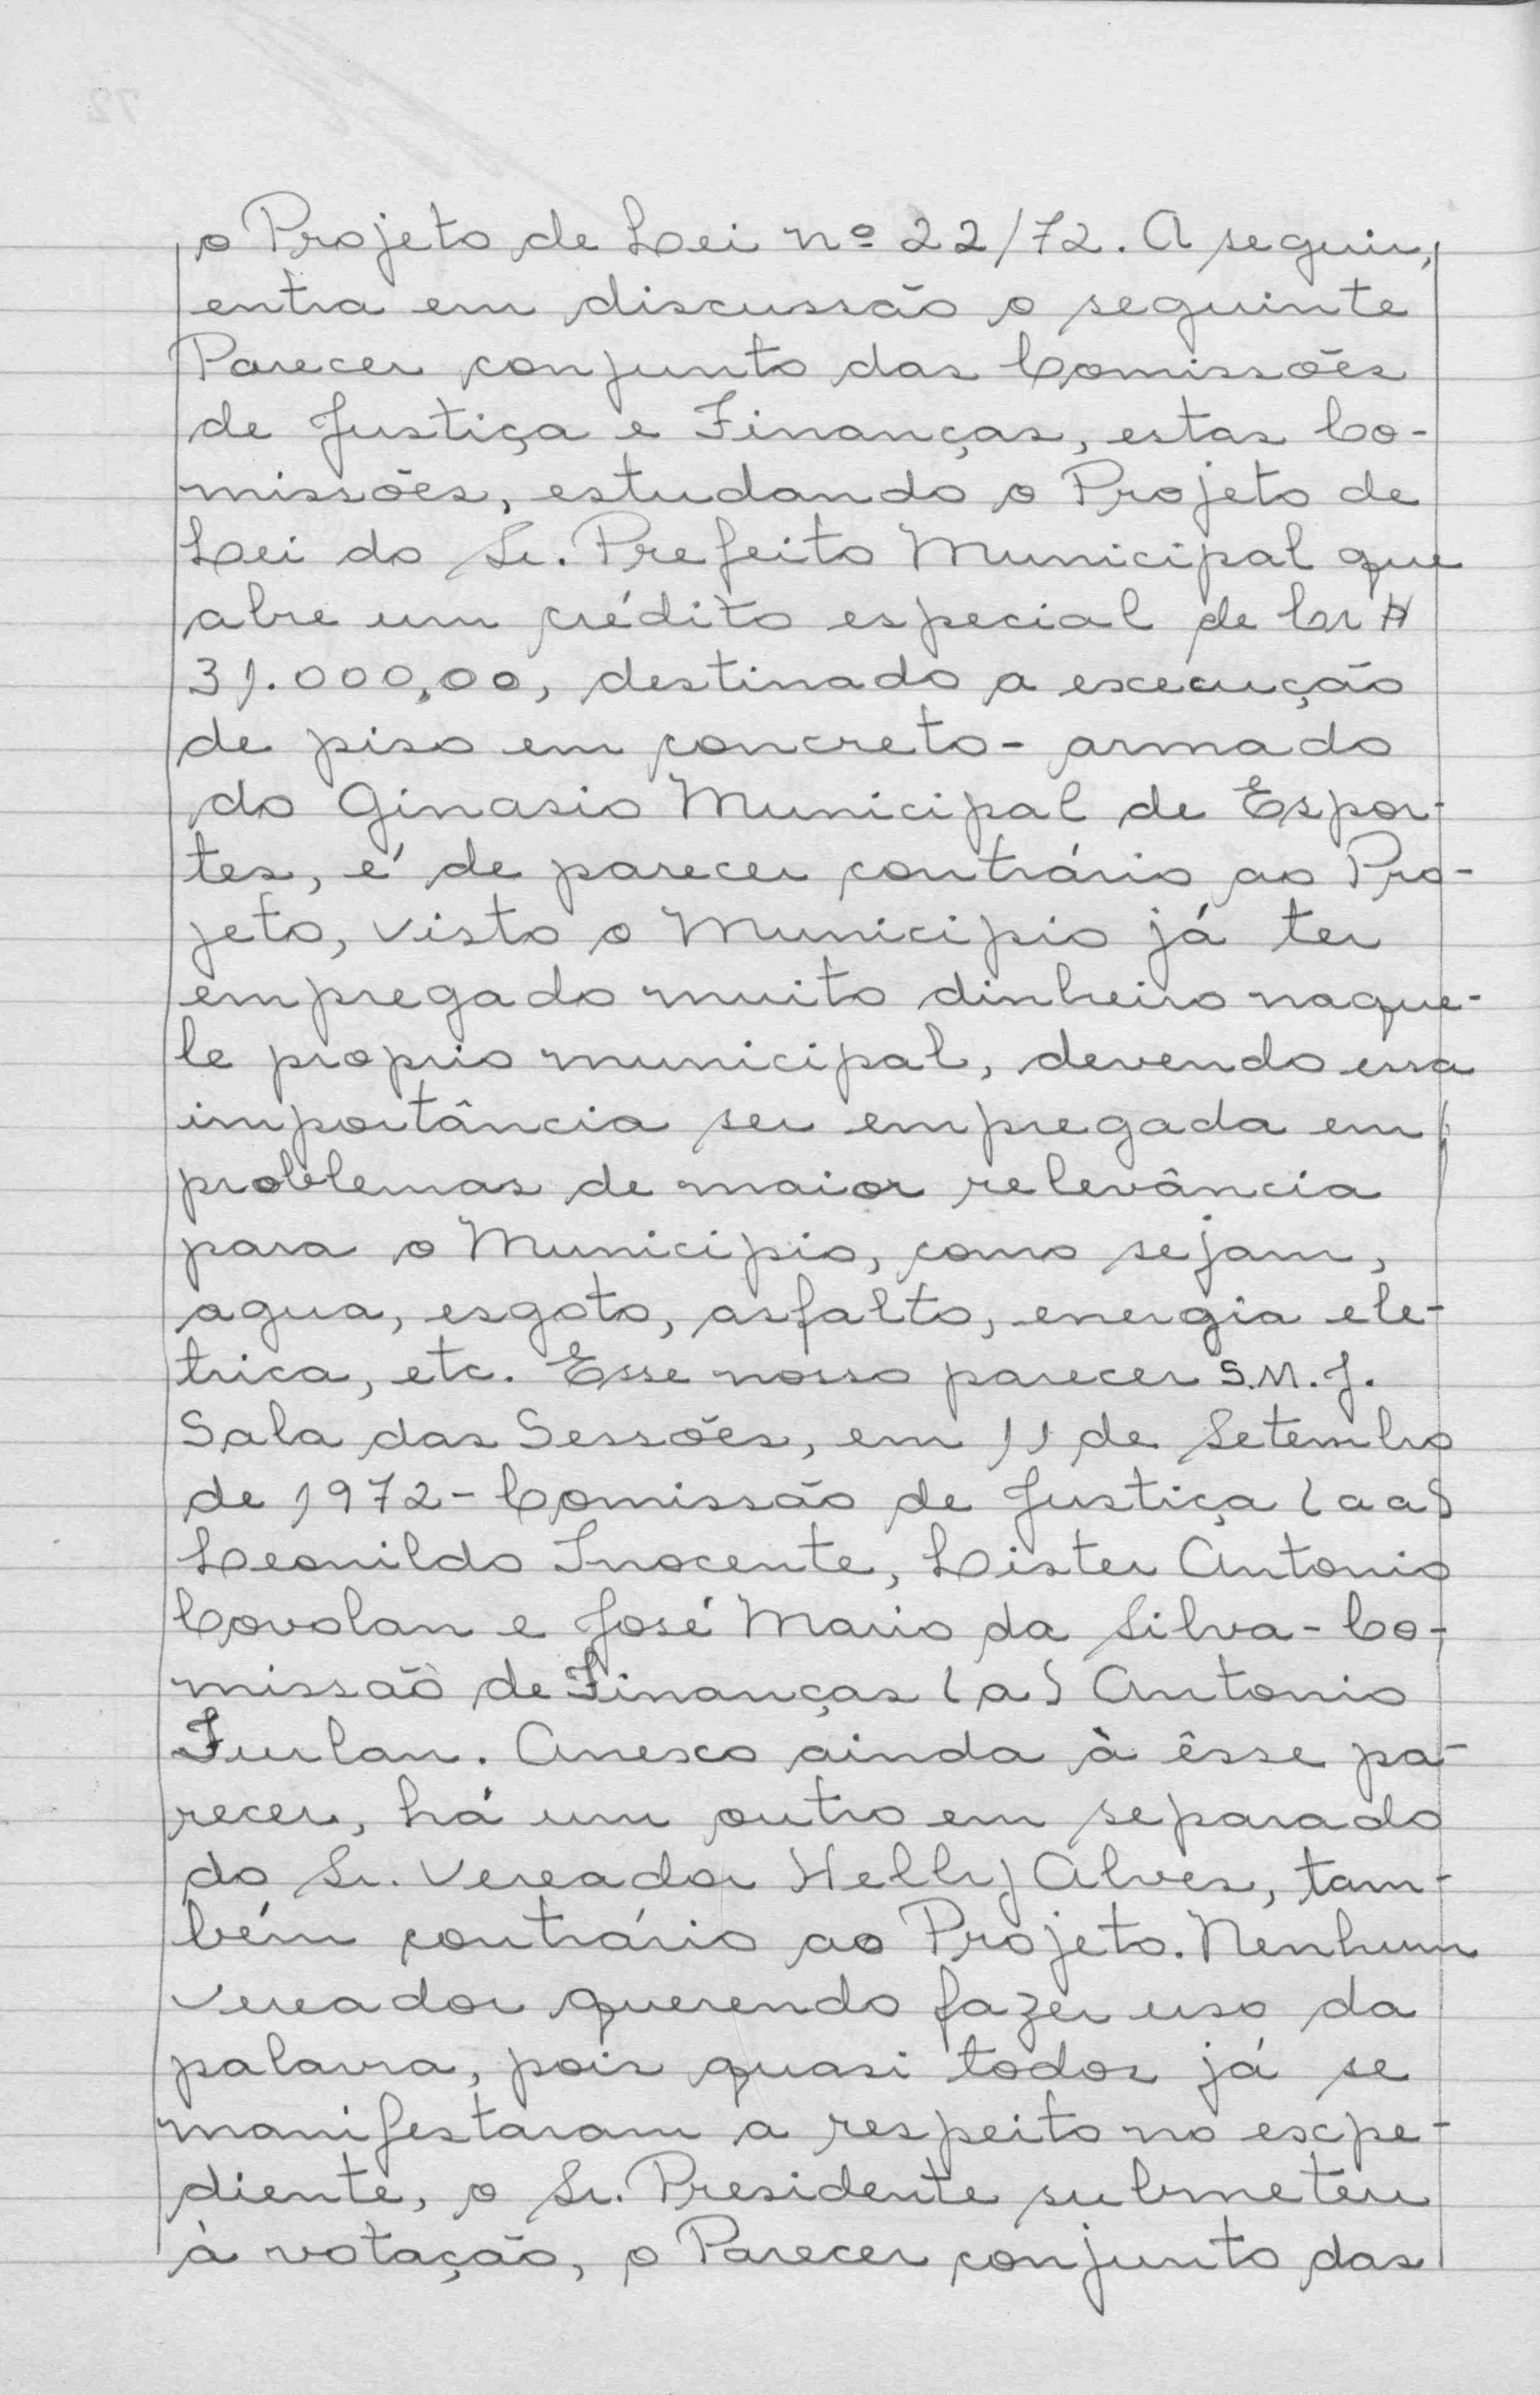 o Projeto de Lei nº 22/72. A seguir,
entra em discussão o seguinte
Parecer conjunto das Comissões
de Justiça e Finanças, estas Co-
missões, estudando o Projeto de
Lei do Sr. Prefeito Municipal que
abre um crédito especial de Cr$
31.000,00, destinado a execução
de piso em concreto-armado
do Ginasio Municipal de Espor-
tes, é de parecer contrário ao Pro-
jeto, visto o Municipio já ter
empregado muito dinheiro naque-
le proprio municipal, devendo essa
importância ser empregada em
problemas de maior relevância
para o Municipio, como sejam,
agua, esgoto, asfalto, energia ele-
trica, etc. Esse nosso parecer S.M.J.
Sala das Sessões, em 11 de Setembro
de 1972 - Comissão de Justiça (aa)
Leonildo Inocente, Lister Antonio
Covolan e José Mario da Silva - Co-
missão de Finanças (a) Antonio
Furlan. Anexo ainda à êsse pa-
recer, há um outro em separado
do Sr. Vereador Helly Alves, tam-
bém contrário ao Projeto. Nenhum
vereador querendo fazer uso da
palavra, pois quasi todos já se
manifestaram a respeito no expe-
diente, o Sr. Presidente submeteu
à votação, o Parecer conjunto das